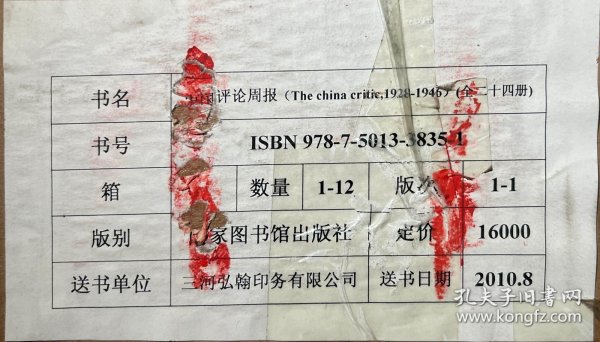 书名 评论周报（The china critic,1928-1946）(全二十四册)
书号 ISBN 978-7-5013-3835-1
箱 数量 1-12 版次 1-1
版别 国家图书馆出版社 定价 16000
送书单位 三河弘翰印务有限公司 送书日期 2010.8
孔夫子旧书网
www.kongfz.com